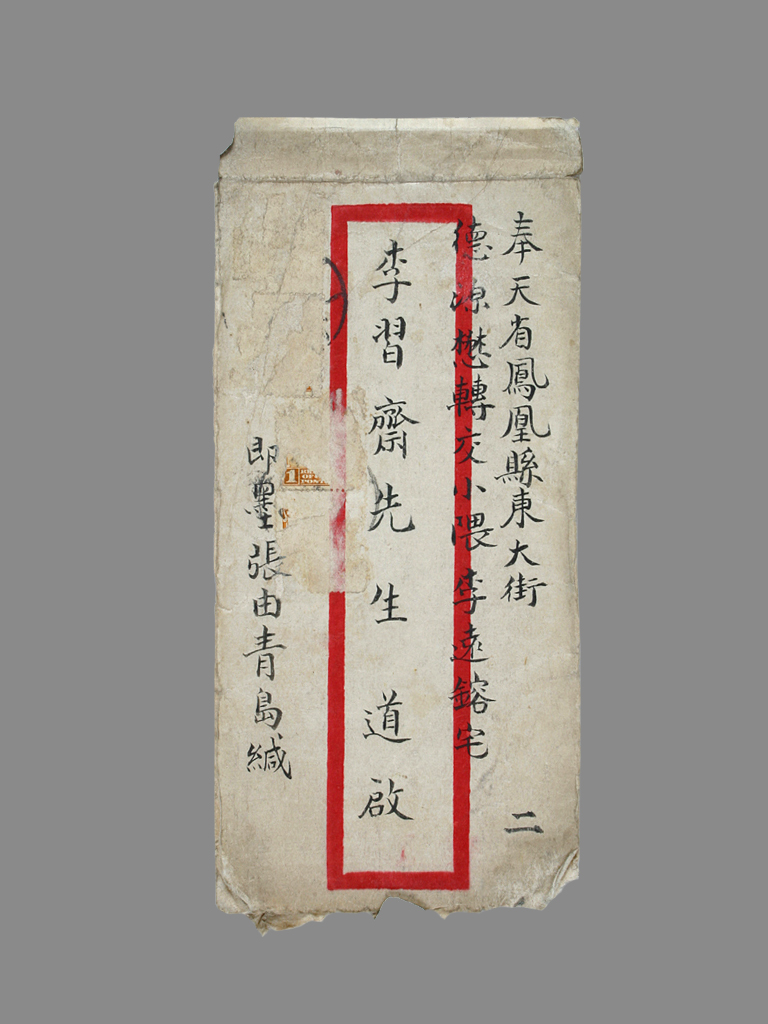 奉天省鳳凰縣東大街
德源懋轉交小隈李遠鎔宅
二
李習齋先生 道啟
即墨張由青島緘
1